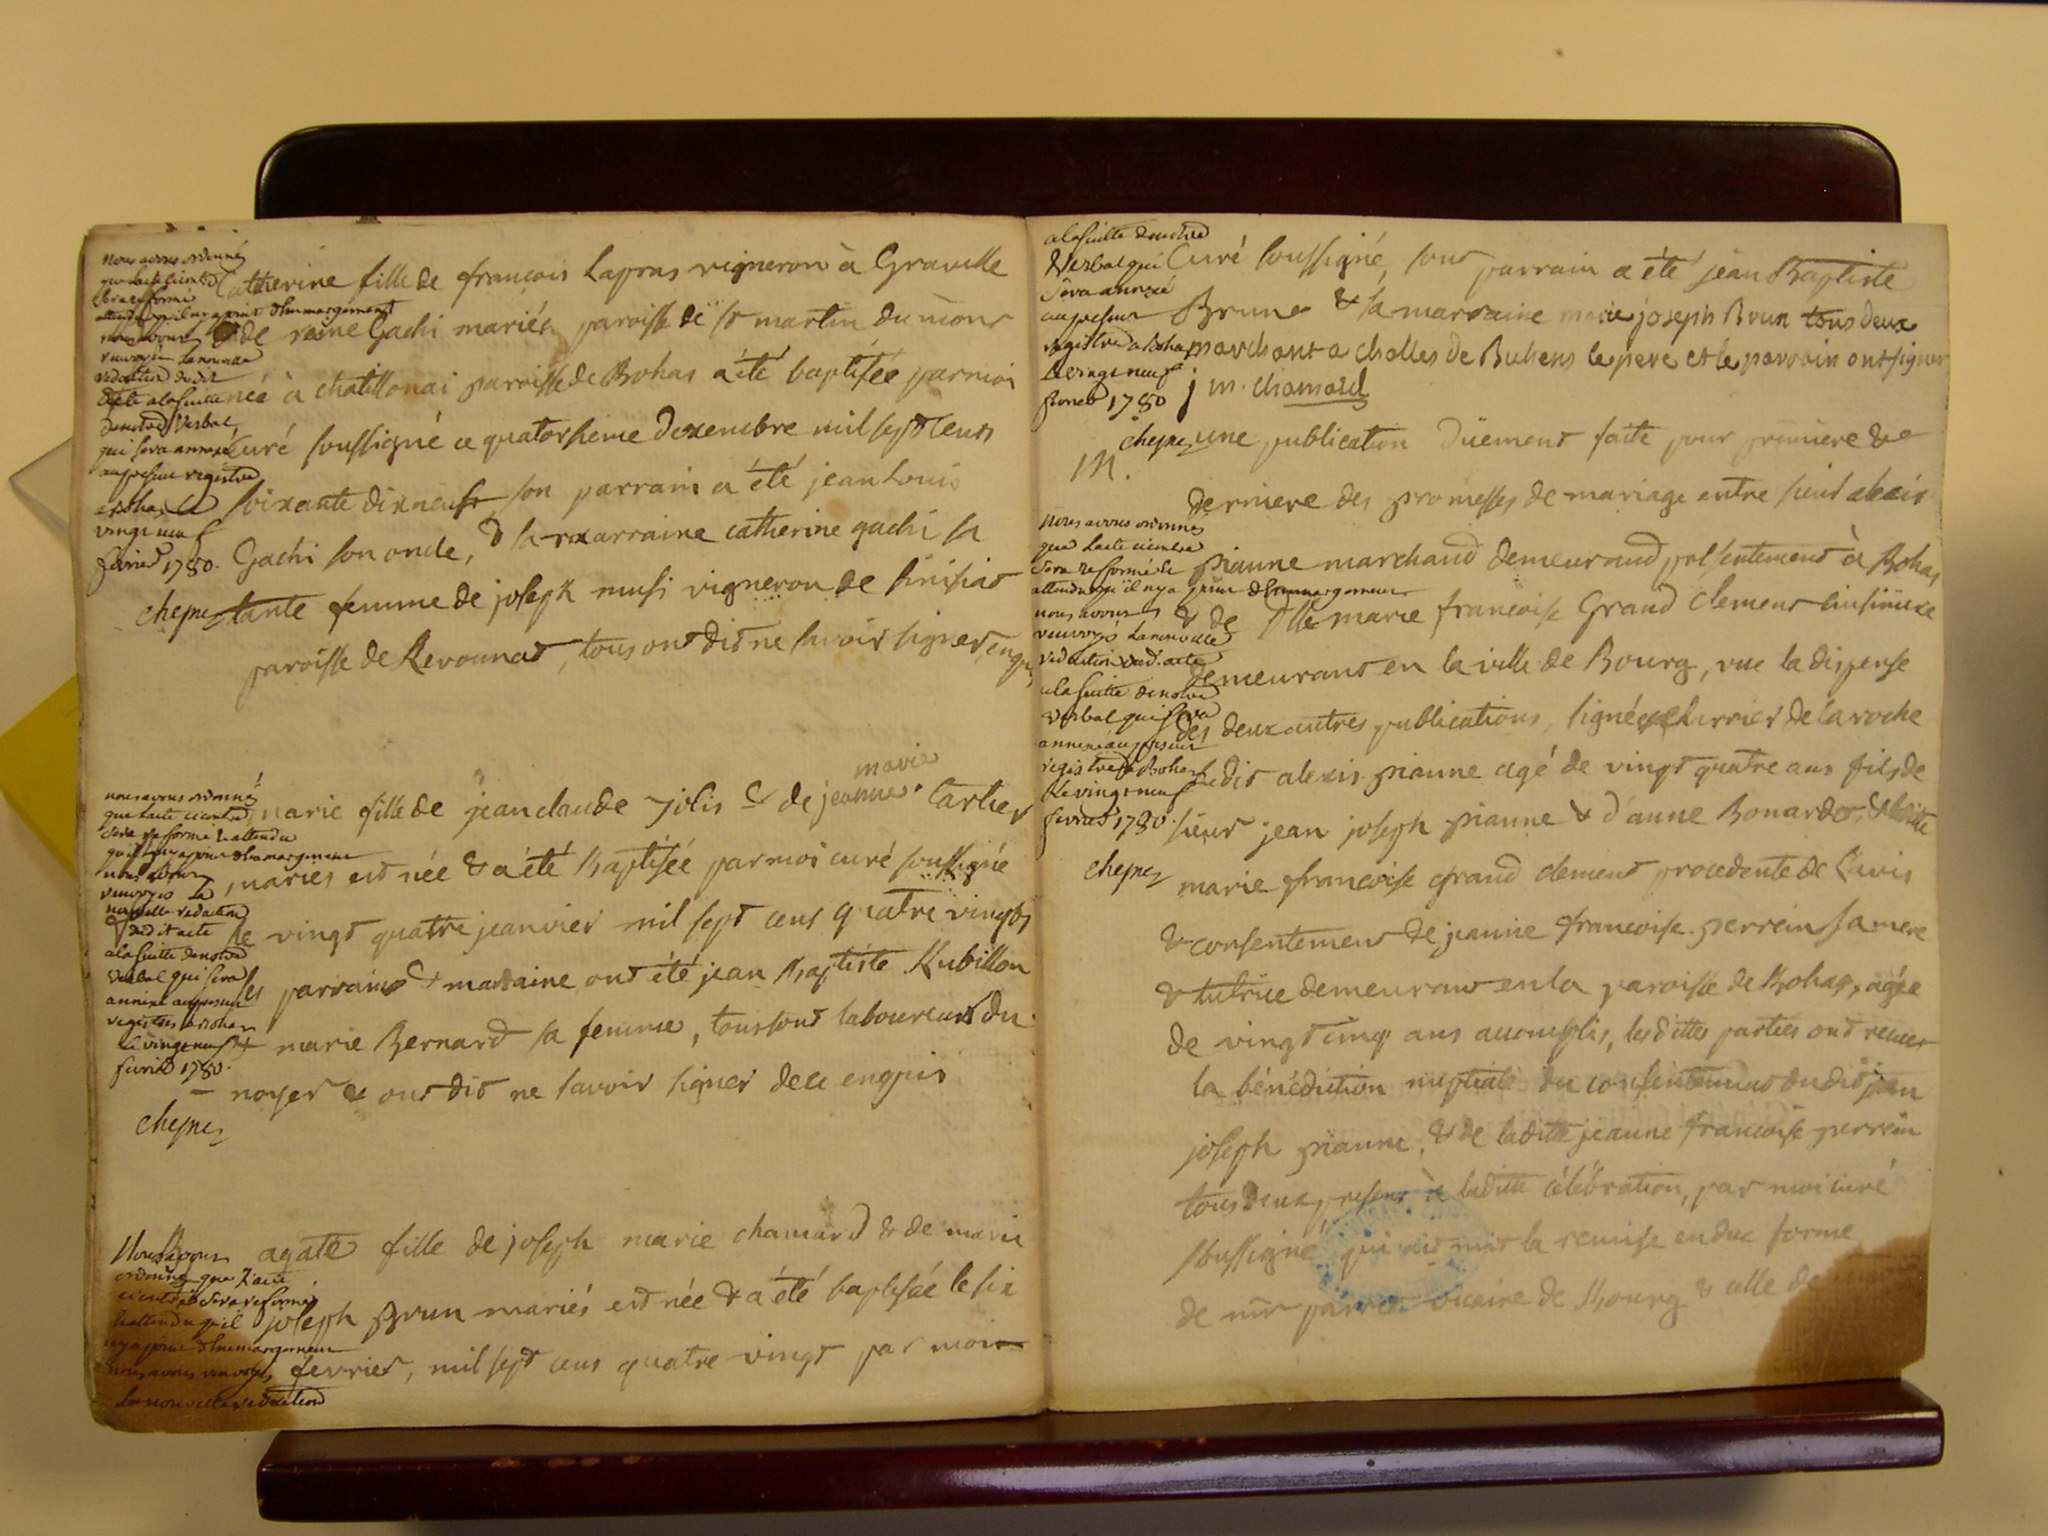 nous avons ordonné
que lacte cicontre
sera reformé
attendu quil ny a point d'Emmargement
nous avons
renvoyé la nouvelle
rédaction dudit
acte a la suitte
de notre Verbal
qui sera annexé
au présent registre
a Bohas le
vingt neuf
février 1780.
cheynez
Catherine fille de françois Lapras vigneron à Gravelle
& de reine Gachi mariés paroisse de st martin du mont
née à chatillonai paroisse de Bohas a été baptisée par moi
Curé soussigné ce quatorsieme decembre mil sept cents
soixante dix neuf, son parrain a été jean Louis
Gachi son oncle, & sa marraine catherine gachi sa
tante femme de joseph musi vigneron de sinisiat
paroisse de Revonnat, tous ont dit ne savoir signer, enquis
nous avons ordonné
que lacte cicontre
sera reformé & attendu
quil ny a point d'Emargement
nous avons
renvoyé la
nouvelle rédaction
dudit acte
a la suitte de notre
verbal qui sera
annexé au présent
registre a Bohas
le vingt neuf
février 1780.
cheynez
marie
marie fille de jean claude jolis & de jeanne Cartier
mariés est née & a été Baptisée par moi curé soussigné
le vingt quatre jeanvier mil sept cent quatre vingts
les parrain & marraine ont été jean Baptiste Rubillon
& marie Bernard sa femme, tous sont laboureurs du
noyer & ont dit ne savoir signer de ce enquis
Nous avons
ordonné que l'acte
cicontre sera reformé
& attendu quil
ny a point d'Emmargement
nous avons renvoyé
la nouvelle rédaction
agate fille de joseph marie chamard & de marie
joseph Brun mariés est née & a été baptisée le six
fevrier, mil sept cent quatre vingt par moi
a la suitte de notre
Verbal qui
sera annexé
au présent
registre a Bohas
le vingt neuf
février 1780
cheynez
Curé soussigné, son parrain a été jean Baptiste
Brun & sa marraine marie joseph Brun tous deux
marchant a cholles de Buhens le pere et le parrain ont signer
j m. chamard
M.
une publication düement faite pour premiere &
derniere des promesses de mariage entre sieur alexis
pianne marchand demeurand présentement à Bohas
& de Dlle marie françoise Grand clement
demeurant en la ville de Bourg, vue la dispense
des deux autres publications, signée de la roche
ledit alexis pianne agé de vingt quatre ans fils de
sieur jean joseph pianne & d'anne Bonardet, & laditte
marie françoise grand clement procedente de l'avis
& consentement de jeanne françoise perrein sa mere
& tutrice demeurant en la paroisse de Bohas, agée
de vingt cinq ans accomplis, lesdittes parties ont recues
la bénédiction nuptiale du consentement dudit jean
joseph pianne, & de laditte jeanne francoise perrein
tous deux present à laditte célébration, par moi curé
soussigné, qui ait la remise en due forme
de mr vicaire de Bourg & celle de
nous avons ordonné
que lacte cicontre
sera reformé &
attendu qu'il ny a point d'Emmargement
nous avons
renvoyé la nouvelle
rédaction dud. acte
a la suitte de notre
verbal qui sera
annexé au présent
registre a Bohas
le vingt neuf
fevrier 1780.
cheynez